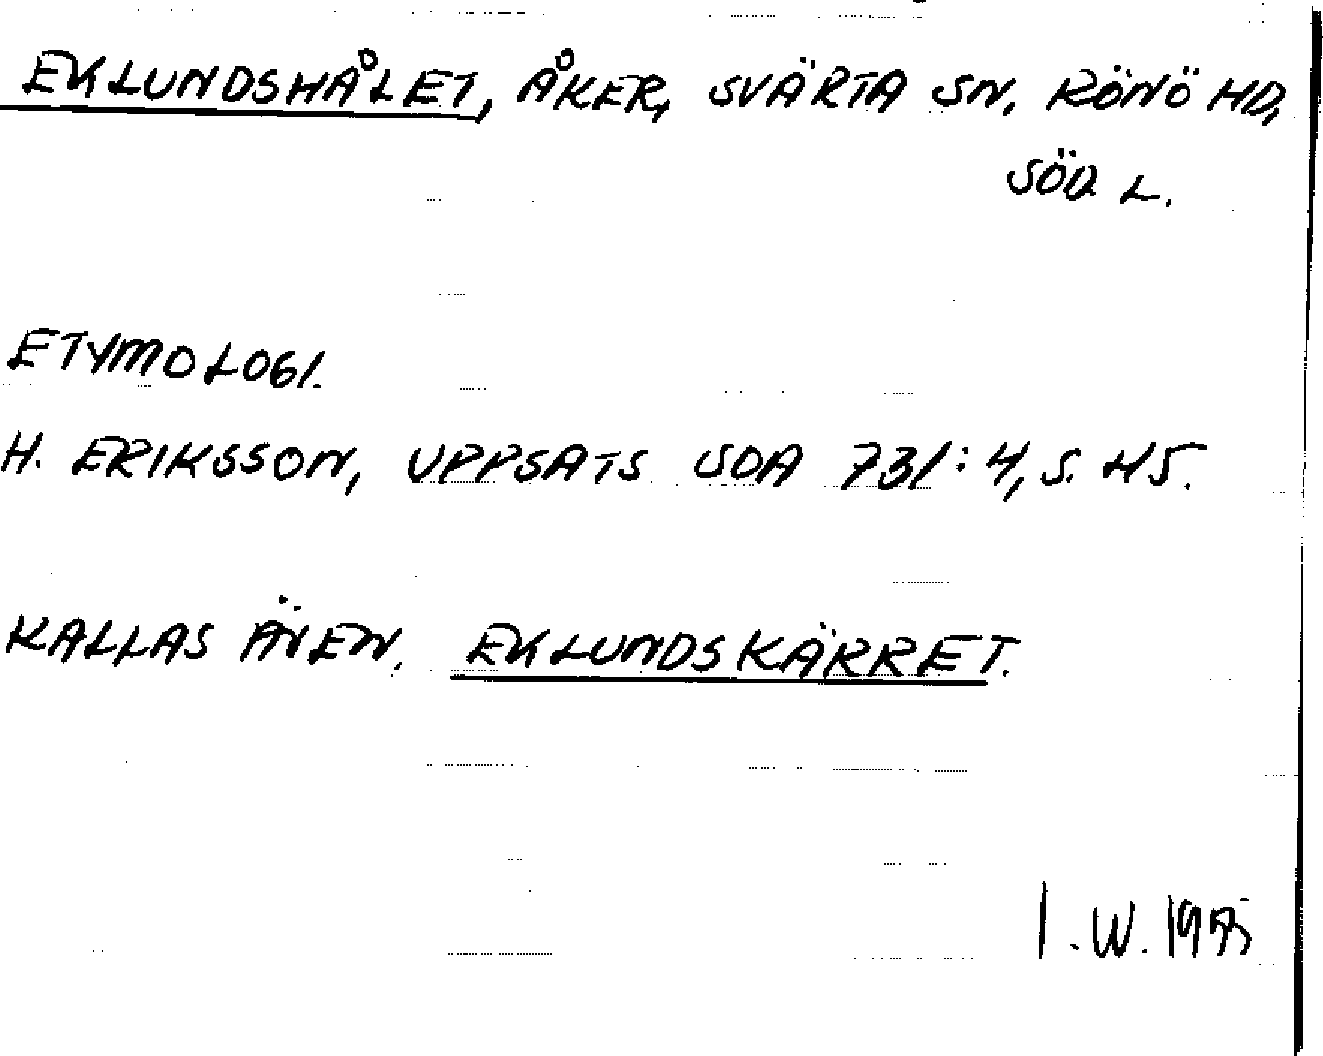 EKLUNDSHÅLET, ÅKER, SVÄRTA SN, RÖNÖ HD,
SÖD. L.
ETYMOLOGI.
H. ERIKSSON, UPPSATS SDA 731:4, S. 45.
KALLAS ÄVEN. EKLUNDSKÄRRET.
I. W. 1975